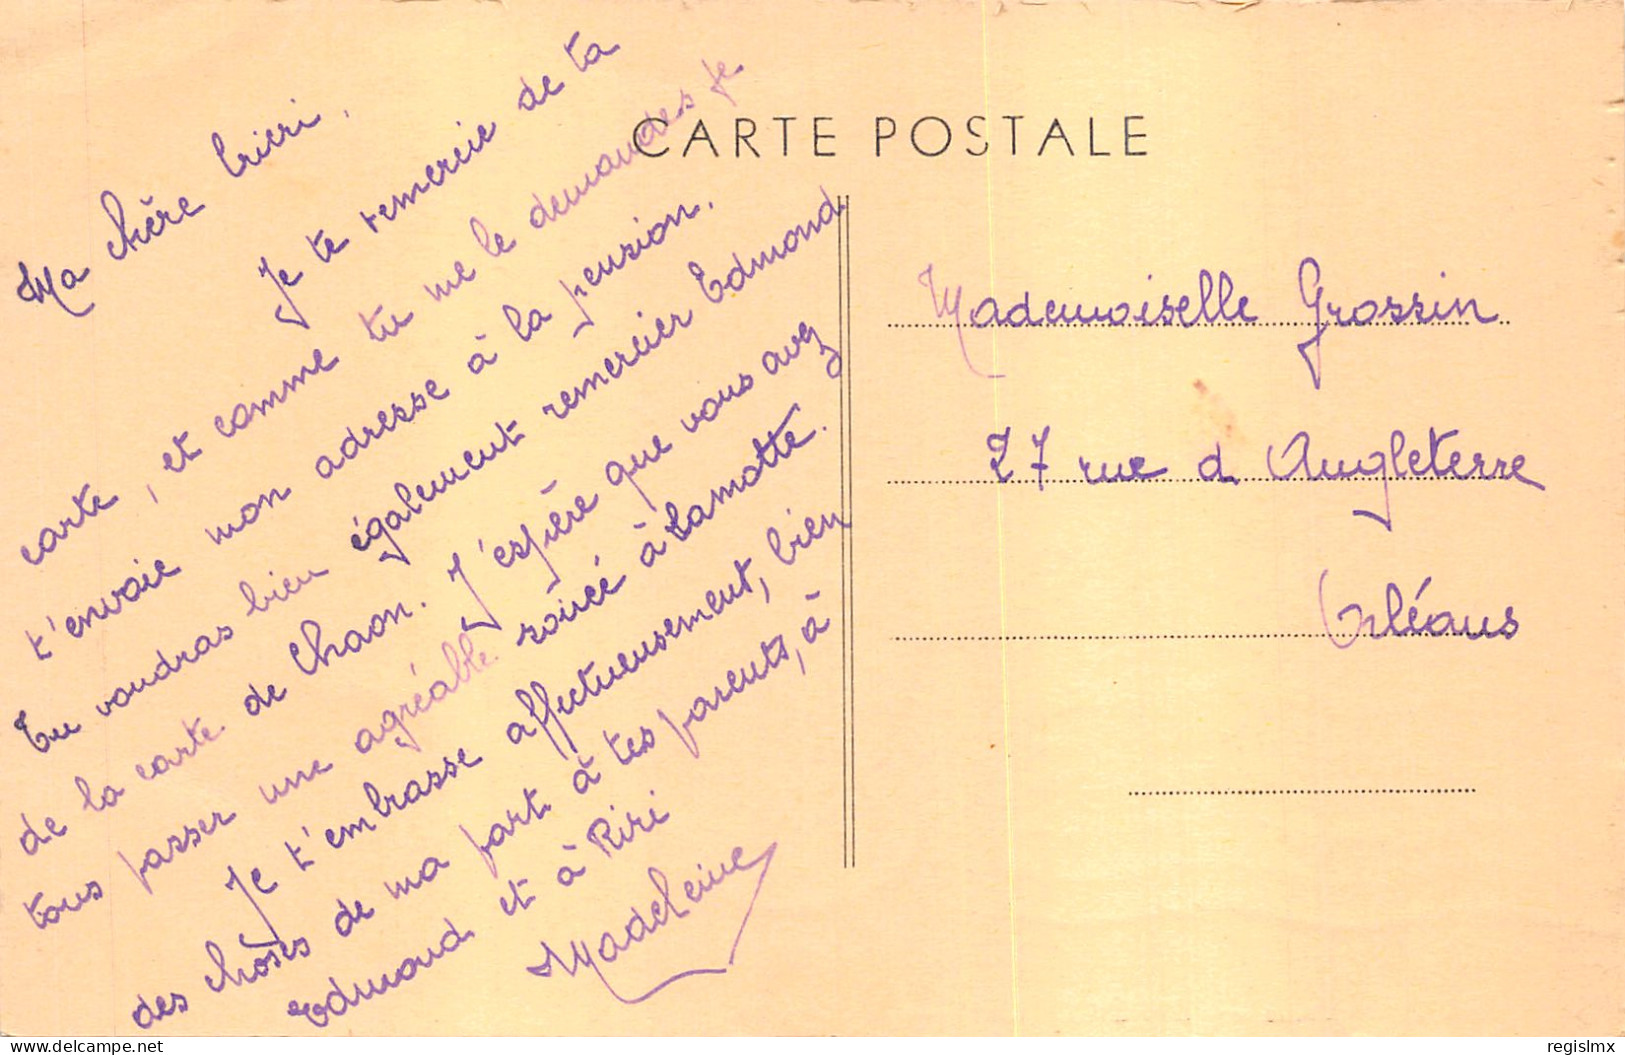 CARTE POSTALE
Ma chère
Je te remercie de ta
carte, et comme tu me le demandes je
t'envoie mon adresse à la pension.
Tu voudras bien également remercier Edmond
de la carte de Chaon. J'espère que vous avez
tous passer une agréable soirée à Lamotte.
Je t'embrasse affectueusement, bien
des choses de ma part à tes parents, à
Edmond et à Riri
Madeleine
Mademoiselle Grossin
27 rue d Angleterre
Orléans
regislmx